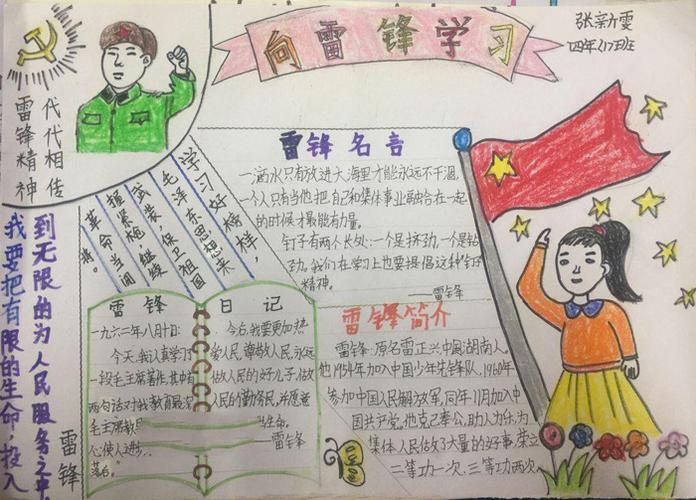 向雷锋学习
张新雯
四年(17)班
代代相传
雷锋精神
学习好榜样，
毛泽东思想来
武装，保卫祖国
握紧枪，继续
革命当闯
将。
雷锋名言
一滴水只有放进大海里才能永远不干涸，
一个人只有当他把自己和集体事业融合在一起
的时候才最能有力量。
钉子有两个长处：一个是挤劲，一个是钻
劲。我们在学习上也要提倡这种钉子
精神。
——雷锋
到无限的为人民服务之中
我要把有限的生命，投入
雷锋
雷锋
一九六二年八月十日：
今天，我认真学习了
一段毛主席著作，其中有
两句话对我教育最深
毛主席教
心使人进步，
落后。
日记
今后，我要更加热
爱人民，尊敬人民，永远
做人民的好儿子，做
人民的勤务员，并愿意
生命。
——雷锋
雷锋简介
雷锋：原名雷正兴，中国湖南人。
他1954年加入中国少年先锋队，1960年
参加中国人民解放军，同年11月加入中
国共产党。他克己奉公，助人为乐，为
集体、人民做了大量的好事，荣立
二等功一次，三等功两次